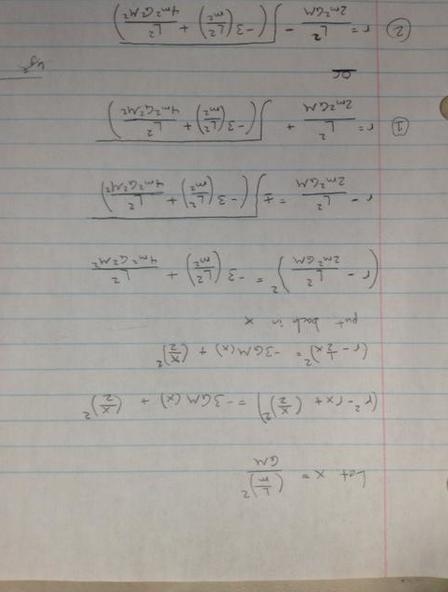 Let x = (L/m)² / GM
(r² - rx + (x/2)²) = -3GM(x) + (x/2)²
(r - ½x)² = -3GM(x) + (x/2)²
put back in x
(r - L²/2m²GM)² = -3(L²/m²) + L²/4m²G²M²
r - L²/2m²GM = ±√(-3(L²/m²) + L²/4m²G²M²)
① r = L²/2m²GM + √(-3(L²/m²) + L²/4m²G²M²)
or
② r = L²/2m²GM - √(-3(L²/m²) + L²/4m²G²M²)